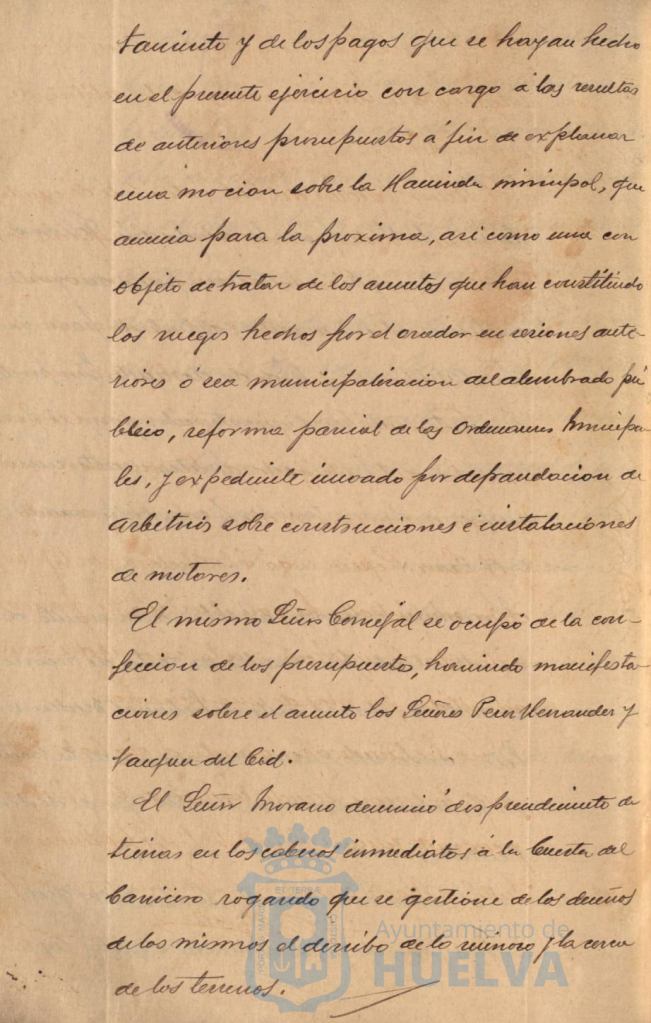 tamiento y de los pagos que se hayan hecho
en el presente ejercicio con cargo á las resultas
de anteriores presupuestos á fin de explanar
una mocion sobre la Hacienda municipal, que
anuncia para la proxima, asi como una con
objeto de tratar de los asuntos que han constituido
los ruegos hechos por el orador en sesiones ante-
riores ó sea municipalizacion del alumbrado pú
blico, reforma parcial de las Ordenanzas Municipa-
les, y expediente incoado por defraudacion de
arbitrios sobre construcciones é instalaciones
de motores.
El mismo Señor Concejal se ocupó de la con-
feccion de los presupuesto, haciendo manifesta-
ciones sobre el asunto los Señores Perez Hernandez y
del Cid.
El Señor Morano denunció desprendimiento de
tierras en los cabezos inmediatos á la Cuesta del
Carnicero rogando que se gestione de los dueños
de los mismos el derribo de lo ruinoso y la cerca
de los terrenos.
Ayuntamiento de
HUELVA